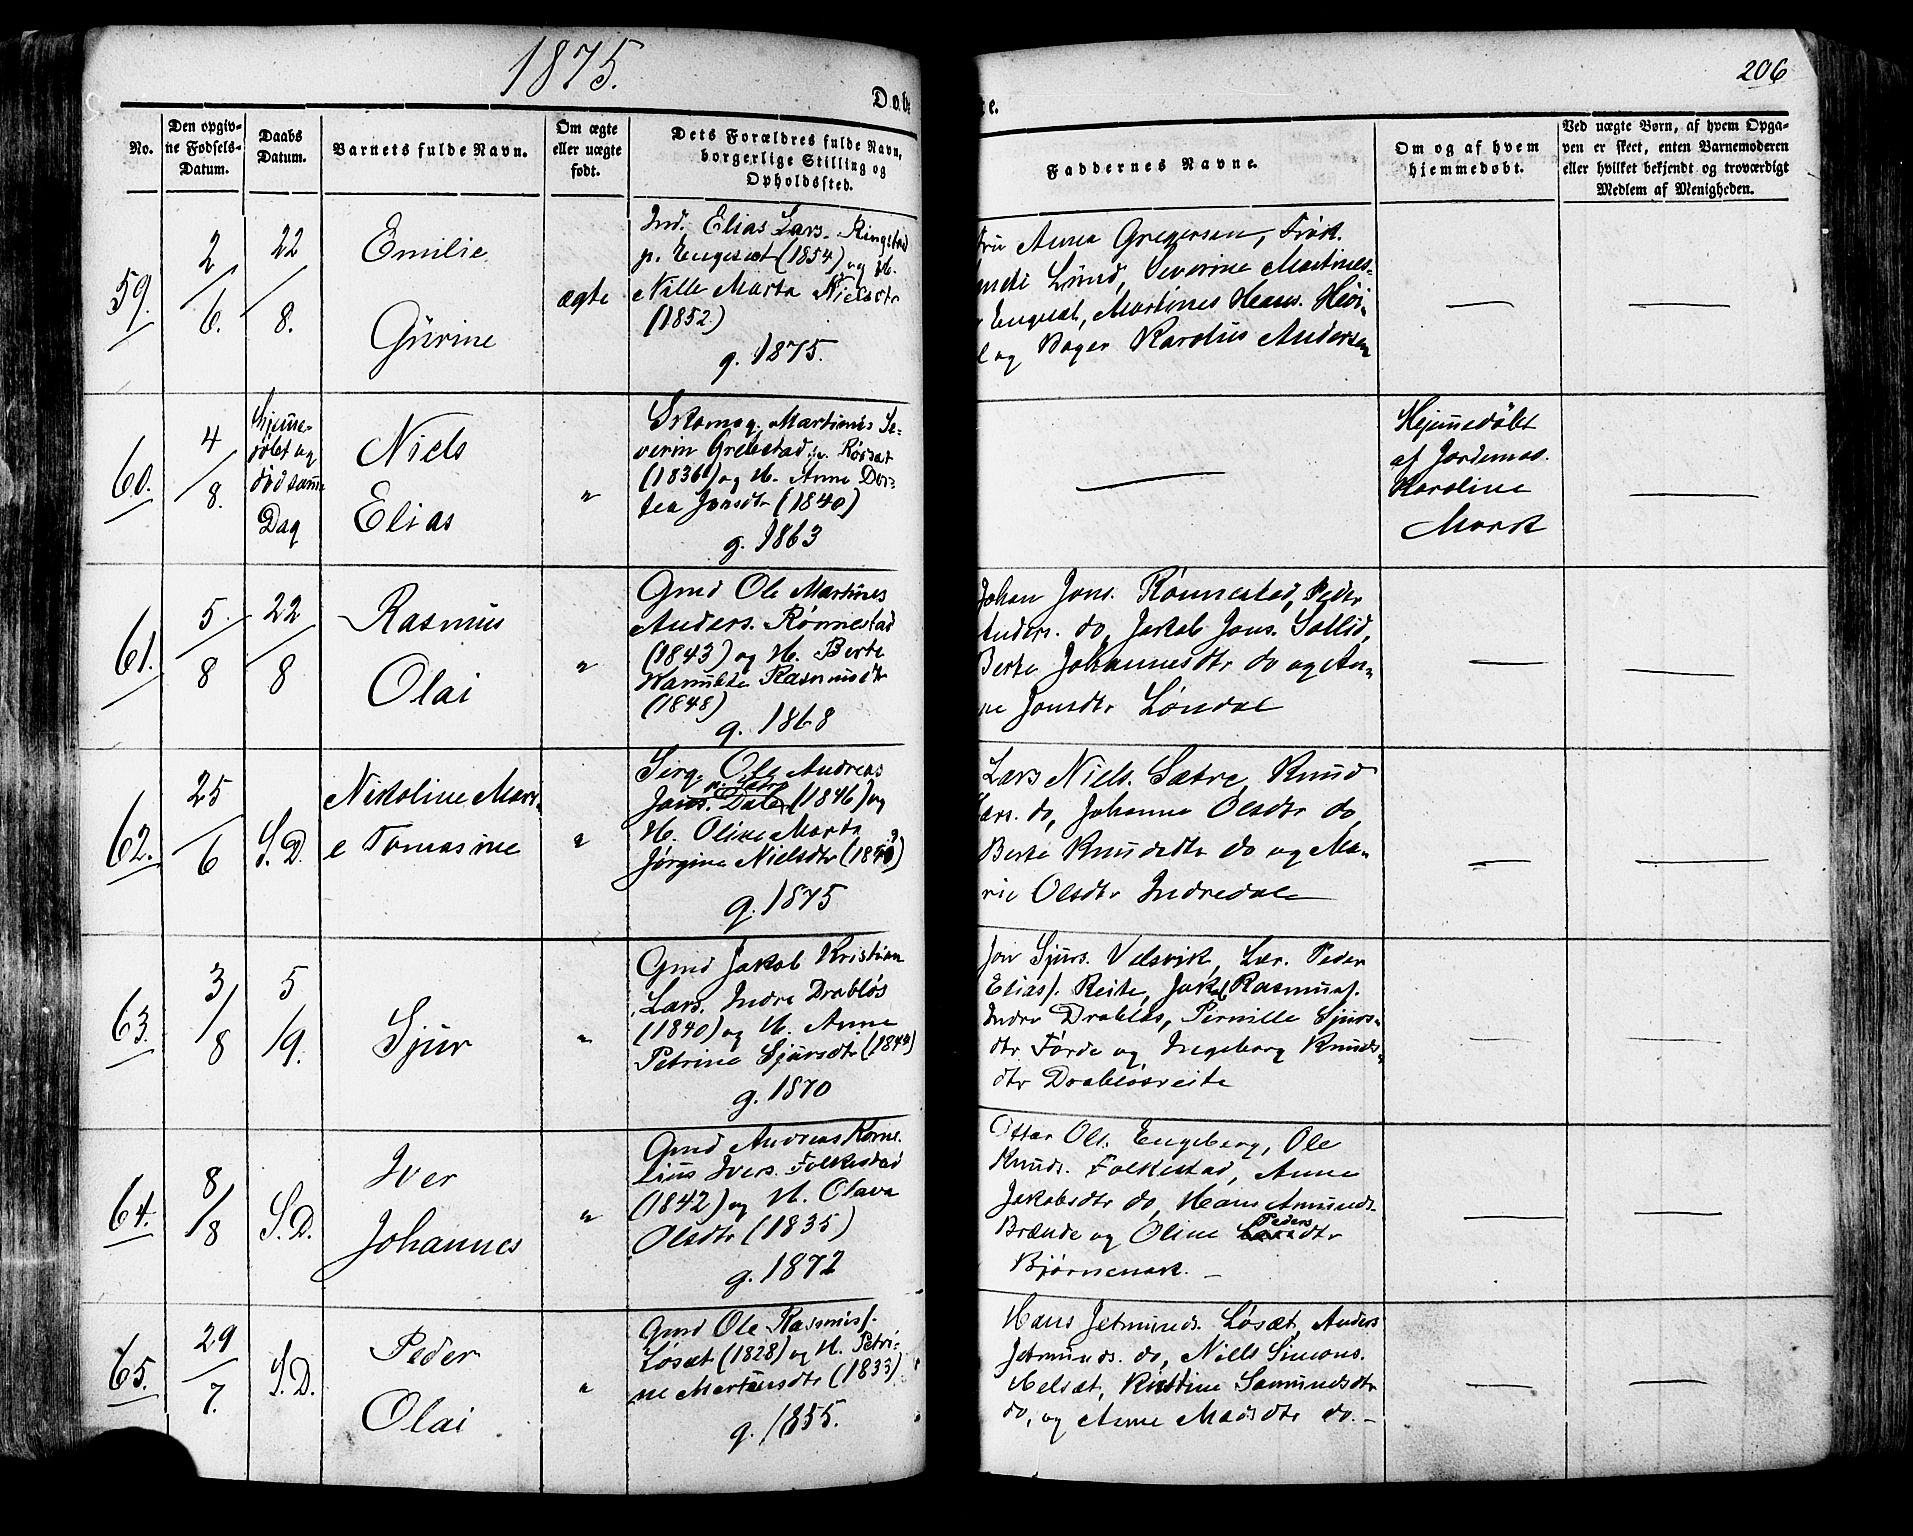 1875.
206
Døbte.
No.
Den opgiv-
ne Fødsels-
Datum.
Daabs
Datum.
Barnets fulde Navn.
Om ægte
eller uægte
født.
Dets Forældres fulde Navn,
borgerlige Stilling og
Opholdssted.
Faddernes Navne.
Om og af hvem
hjemmedøbt.
Ved uægte Børn, af hvem Opga-
ven er skeet, enten Barnemoderen
eller hvilket bekjendt og troværdigt
Medlem af Menigheden.
59.
2/6.
22/8.
Emilie
Gurine
ægte
Ind. Elias Lars. Ringstad
p. Engeset (1854) og H.
Nille Marta Nielsdtr
(1852)
g. 1875.
Fru Anna Gregersen, Frøk.
Lund, Severine Martines-
Engeset, Martines Hans. Høi-
og Bager Karolus Andersen
60.
4/8.
Hjemme-
døbt og
død samme
Dag
Niels
Elias
"
Skomag. Martinus Se-
verin Grebstad p. Røsæt
(1836) og H. Anne Dor-
tea Jonsdtr (1840)
g. 1863
Hjemmedøbt
af Jordemod.
Karoline
Mork
61.
5./8
22/8
Rasmus
Olai
"
Gmd Ole Martinus
Anders. Rønnestad
(1843) og H. Berte
Kanutte Rasmusdtr
(1848)
g. 1868
Johan Jons. Rønnestad, Peder
Anders. do, Jakob Jons. Sollid,
Berte Johannesdtr do og An-
ne Jonsdtr Løndal
62.
25/6
S.D.
Nikoline Mari-
e Tomasine
"
Serg. Ole Andreas
p. Sætre
Jons. Dale (1846) og
H. Oline Marta
Jørgine Nielsdtr
g. 1875
Lars Niels. Sætre, Knud
Lars. do, Johanna Olsdtr do,
Berte Knudsdtr do og Ma-
rie Olsdtr Indredal
63.
3/8
5/9.
Sjur
"
Gmd Jakob Kristian
Lars. Indre Drabløs
(1840) og H. Anne
Petrine Sjursdtr (1844)
g. 1870
Jon Sjurs. Velsvik, Lær. Peder
Eliass. Reite, Jak. Rasmuss.
Indre Drabløs, Pernille Sjurs-
dtr Førde og Ingeborg Knuds-
dtr Drabløsreite
64.
8/8
S.D.
Iver
Johannes
"
Gmd Andreas Korne-
lius Ivers. Folkestad
(1842) og H. Olava
Olsdtr (1835)
g. 1872
Ottar Ols. Engeberg, Ole
Knuds. Folkestad, Anne
Jakobsdtr do, Hans Amunds.
Brænde og Oline Larsdtr
Peders
Bjørnenak. –
65.
29/7.
S.D.
Peder
Olai
"
Gmd Ole Rasmuss.
Løsæt (1828) og H. Petri-
ne Martinusdtr (1833)
g. 1855.
Hans Jetmunds. Løsæt, Anders
Jetmunds. do, Niels Simons.
Helsæt, Kristine Samundsdtr
do, og Anne Madsdtr do. –